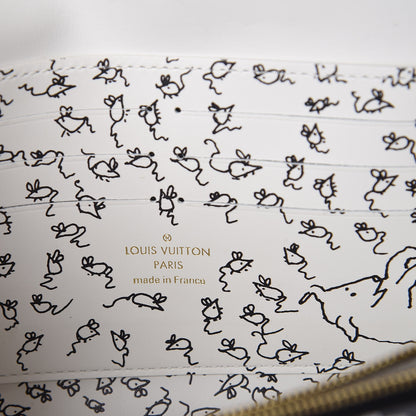 LOUIS VUITTON
PARIS
made in France